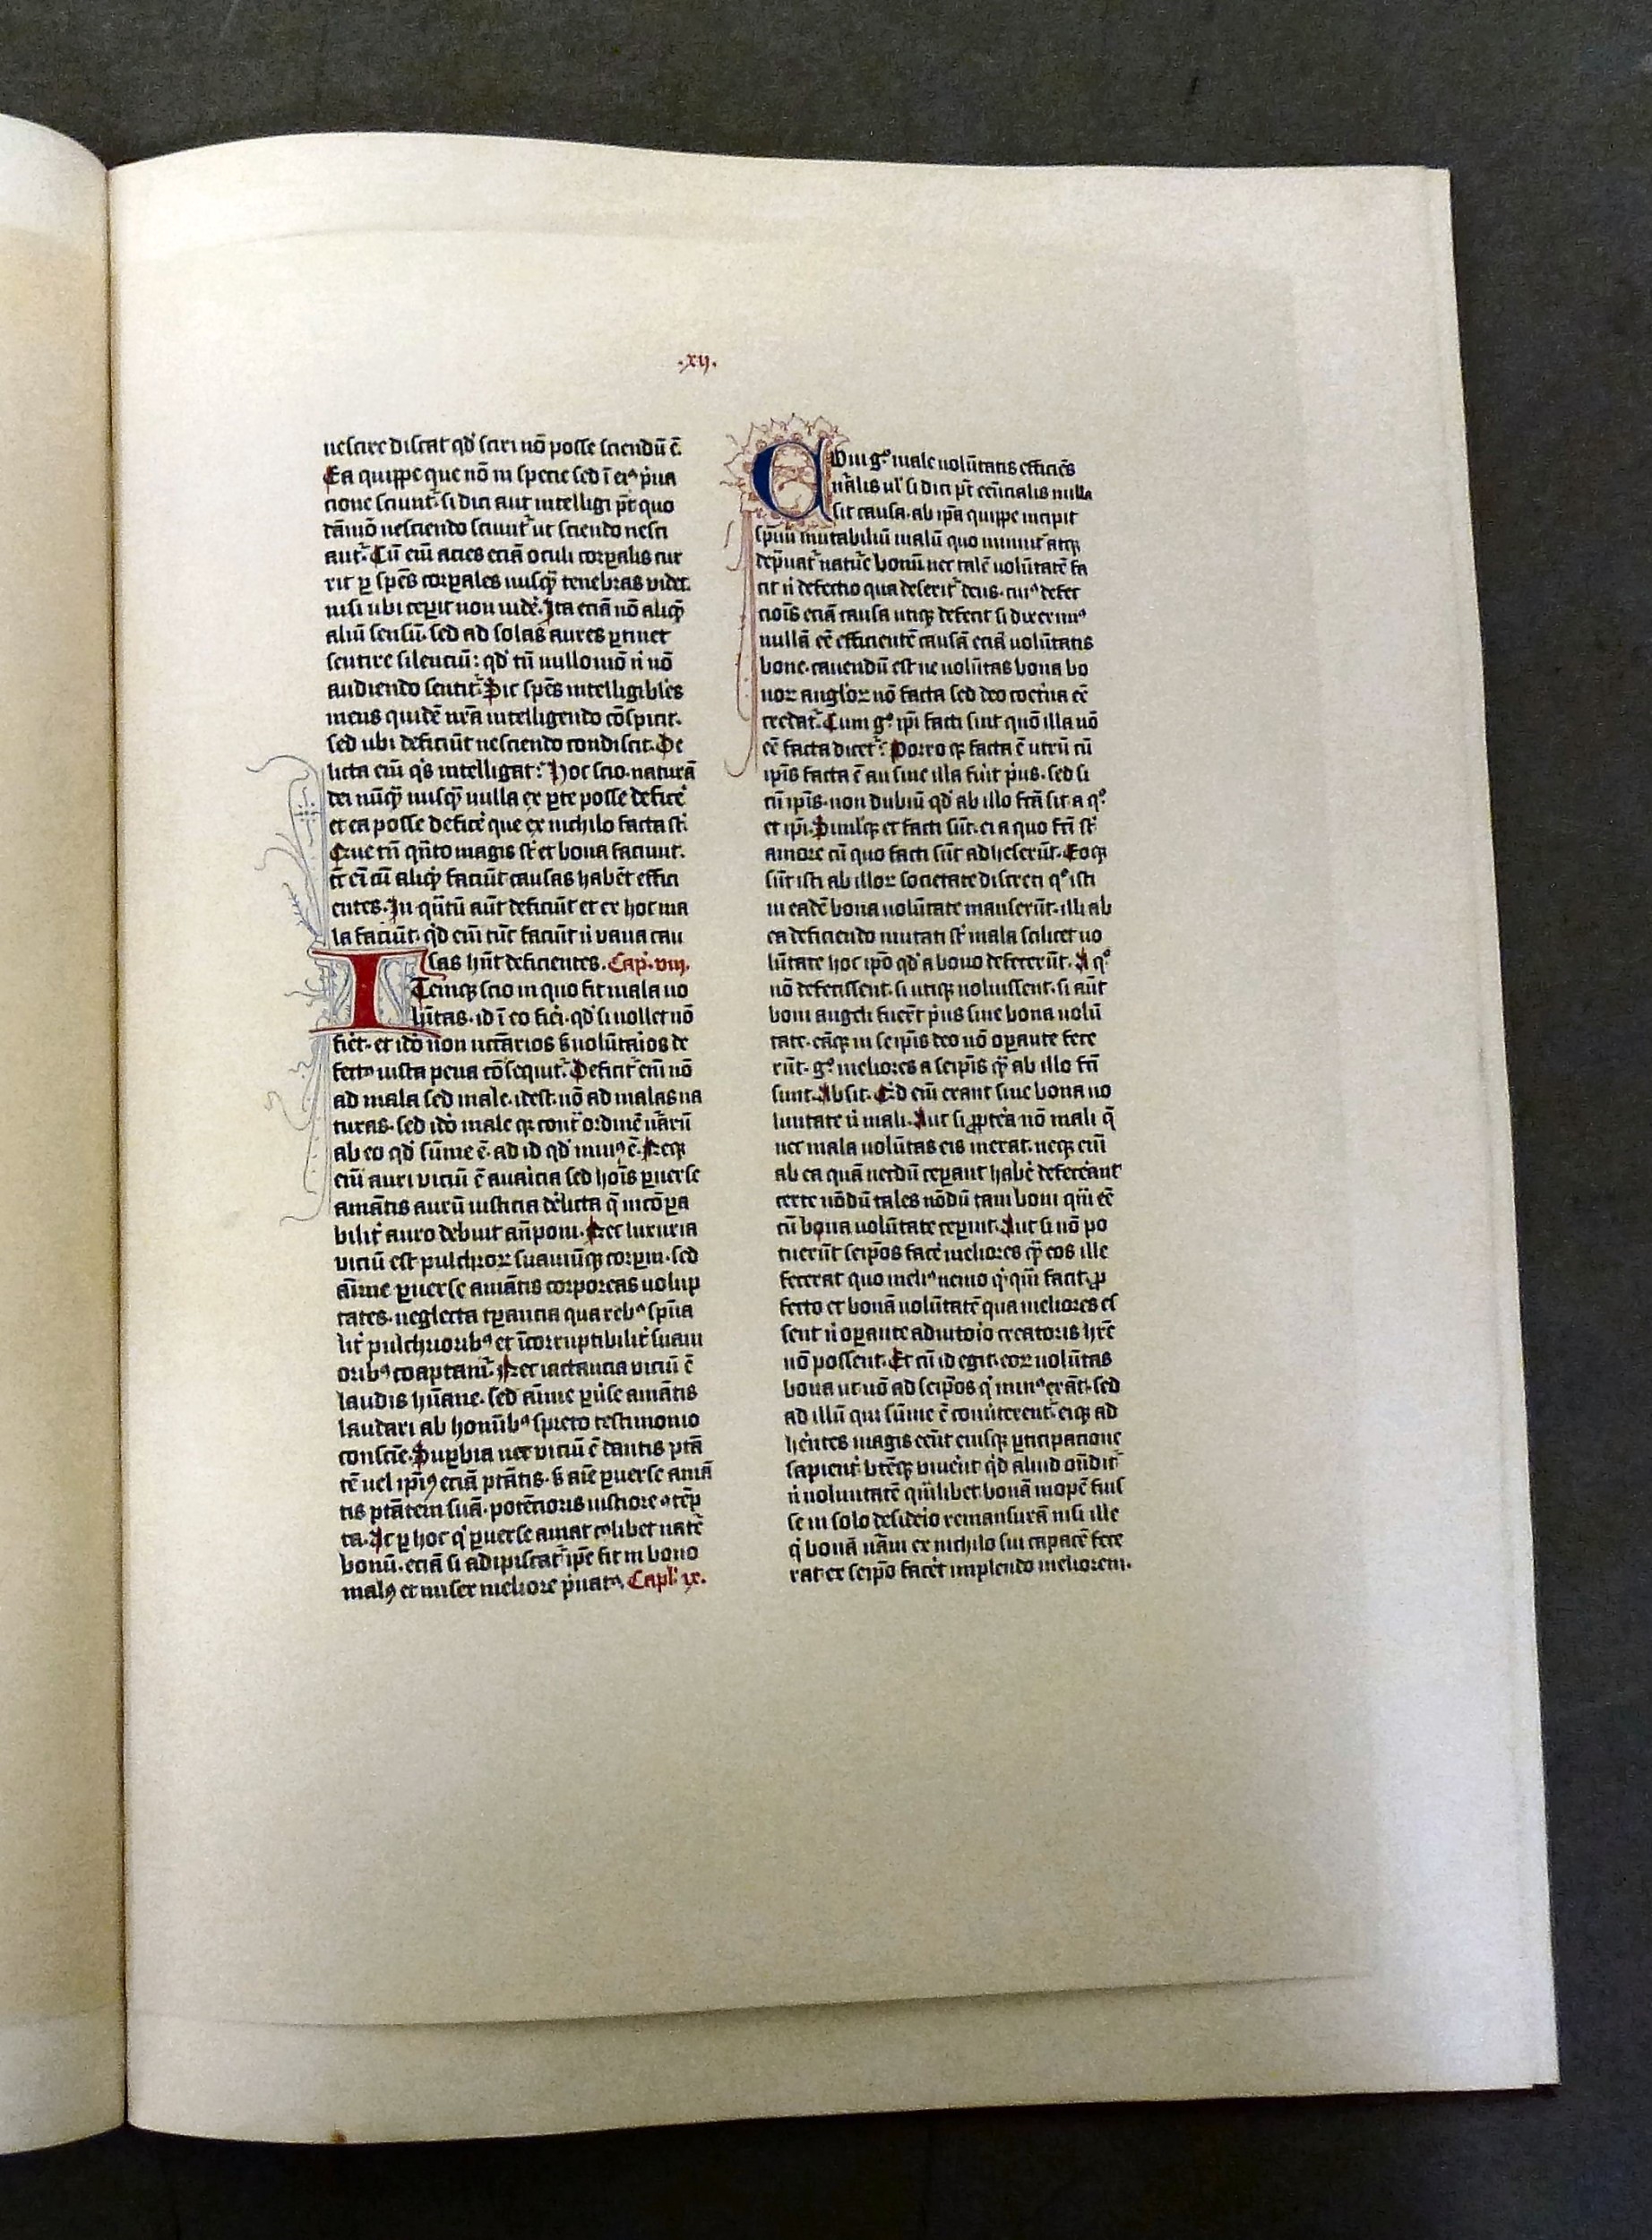 .xij.
nescire discat qd' sciri nō posse sciendū ē.
Ea quippe que nō in specie sed ī eiꝰ p̓ua
cione sciunt᷑. si dici aut intelligi pt̄ quo
dāmō nesciendo sciunt᷑ ut sciendo nesci
ant᷑. Cū eīm acies eciā oculi corꝑalis cur
rit ꝑ spēs corꝑales nusqȝ̄ tenebras videt.
nisi ubi ceꝑit non uidē. Ita eciā nō aliqȝ̄
aliū sensū. sed ad solas aures ꝑtinet
sentire silenciū: qd' tn̄ nullo mō n̓ nō
audiendo sentit᷑. Sic spēs intelligibles
mens quidē nr̄a intelligendo cōspicit.
sed ubi deficiūt nesciendo condiscit. De
licta eīm q̓s intelligat: Hoc scio. naturā
dei nūqȝ̄ nusqȝ̄ nulla ex ꝑte posse deficē
et ea posse deficē que ex nichilo facta st̄.
Que tn̄ qn̄to magis st̄ et bona faciunt.
tc̄ eī cū aliqȝ̄ faciūt causas habēt effici
entes. In qn̄tū aūt deficiūt et ex hoc ma
la faciūt. qd eīm tūc faciūt n̓ vana cau
sas hn̄t deficientes. Cap̄. viij.
ITemqȝ scio in quo fit mala uo
lūtas. id ī eo fiēi. qd' si nollet nō
fiēt. et idō non nccārios sȝ uolūtaios de
fectꝰ iusta pena cōsequit᷑. Deficit᷑ eīm nō
ad mala sed male. idest. nō ad malas na
turas. sed idō male qȝ cont᷑ ordinē nārū
ab eo qd' sūme ē. ad id qd' minꝰ ē. Neqȝ
eīm auri viciū ē auaricia sed hoīs ꝑuerse
amātis aurū iusticia delicta q̄ incōꝑa
bilit᷑ auro debuit an̄poni. Nec luxuria
viciū est pulchroꝝ suauiūqȝ corꝑm. sed
aīme ꝑuerse amātis corporeas uolup
tates. neglecta tꝑancia qua rebꝰ spūa
lit᷑ pulchrioribꝰ et īcorruptibilit᷑ suaui
oribꝰ coaptam᷑. Nec iactancia viciū ē
laudis hūane. sed aīme ꝑuse amātis
laudari ab hominībꝰ spreto testimonio
consciē. Suꝑbia nec viciū ē dantis ptā
tē uel ipīꝰ eciā ptātis. sȝ aīe ꝑuerse amā
tis ptātem suā. potēcioris iustiore ꝯtēp
ta. Ac ꝑ hoc q̓ ꝑuerse amat cꝰlibet natē
bonū. eciā si adipiscat᷑ ipē fit in bono
malꝰ et miser meliore p̓uatꝰ. Capl̄ ix.
CVm gͦ male uolūtatis efficiēs
nālis ul' si dici pt̄ cēncialis nulla
sit causa. ab ipā quippe incipit
spūū mutabiliū malū quo minuit᷑ atqȝ
dep̓uat᷑ natūe bonū nec talē uolūtatē fa
cit n̓ defectio qua deserit᷑ deus. cuiꝰ defec
cioīs eciā causa utiqȝ deficit si dixerimꝰ
nullā eē efficientē causā eciā uolūtatis
bone. cauendū est ne uolūtas bona bo
noꝝ angl'oꝝ nō facta sed deo coetna eē
credat᷑. Cum gͦ ipī facti sint quō illa nō
eē facta dicet᷑: Porro qȝ facta ē utrū cū
ipīs facta ē an sine illa fuīt p̓us. sed si
cū ipīs. non dubiū qd' ab illo fcā sit a qͦ
et ipī. Simlqȝ et facti sūt. ei a quo fcī st̄
amore cū quo facti sūt adheserūt. Eoqȝ
sūt isti ab illoꝝ societate discreti qͦ isti
in eadē bona uolūtate manserūt. illi ab
ea deficiendo mutati st̄ mala scilicet uo
lūtate hoc ipō qd' a bono defecerūt. A qͦ
nō defecissent. si utiqȝ noluissent. si aūt
boni angeli fuerīt p̓us sine bona uolū
tate. eāqȝ in seipīs deo nō oꝑante fece
rūt. gͦ meliores a seipīs qȝ̄ ab illo fcī
sunt. Absit. Qd eīm erant sine bona uo
luntate n̓ mali. Aut si ꝓpt'ea nō mali q̄
nec mala uolūtas eis inerat. neqȝ eīm
ab ea quā necdū ceꝑant habē defecēant
certe nōdū tales nōdū tam boni qm̄ eē
cū bona uolūtate ceꝑint. Aut si nō po
tuerūt seipōs facē meliores qȝ̄ eos ille
fecerat quo meliꝰ nemo q̓qm̄ facit. ꝓ
fecto et bonā uolūtatē qua meliores es
sent n̓ oꝑante adiutoio creatoris hr̄e
nō possent. Et cū id egit. eoꝝ uolūtas
bona ut nō ad seipōs q̓ minꝰ erāt. sed
ad illū qui sūme ē conūterent᷑. eiqȝ ad
hētes magis eent eiusqȝ ꝑticipacione
sapient᷑ btēqȝ viuent qd aliud ondit᷑
n̓ voluntatē qm̄libet bonā inopē fuis
se in solo desideio remansurā nisi ille
q̓ bonā nām ex nichilo sui capacē fece
rat ex seipō facēt implendo meliorem.